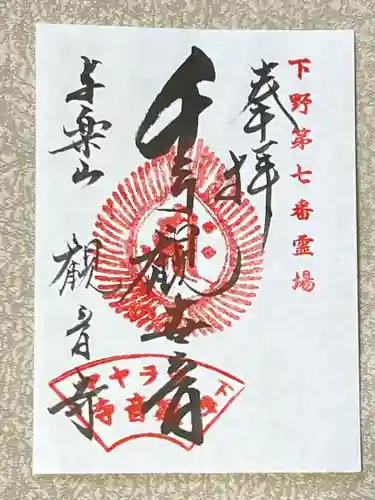 下野第七番霊場
奉拝
千手観世音
与楽山
観音寺